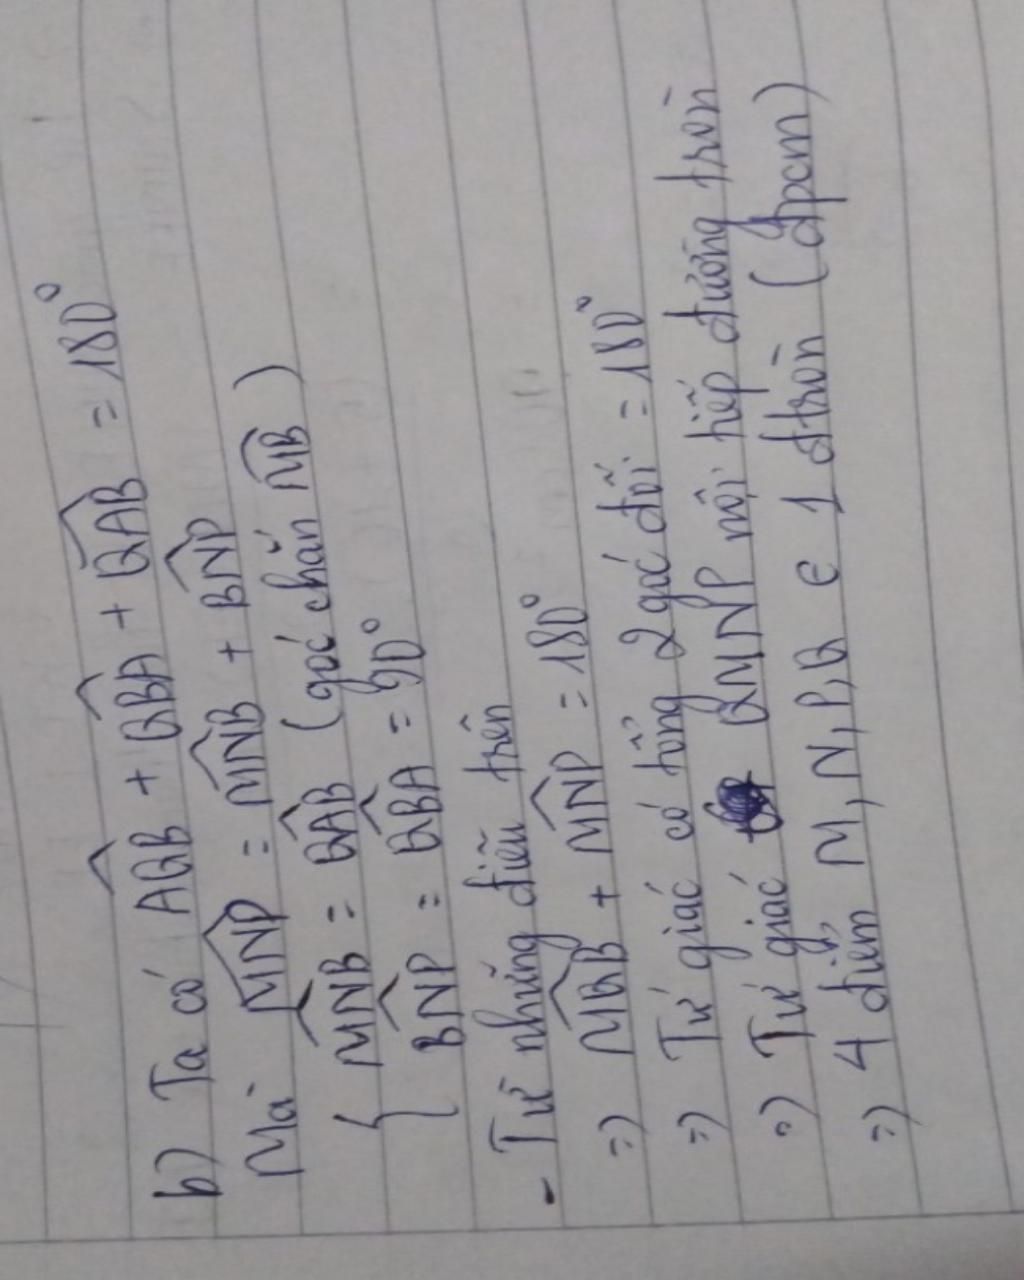 b) Ta có AQB + QBA + QAB = 180°
Mà MNP = MNB + BNP
{ MNB = QAB (góc chắn MB)
BNP = QBA = 90°
- Từ những điều trên
=) MQB + MNP = 180°
=) Tứ giác có tổng 2 góc đối = 180°
=) Tứ giác QMNP nội tiếp đường tròn
=) 4 điểm M, N, P, Q ∈ 1 đtròn (đpcm)